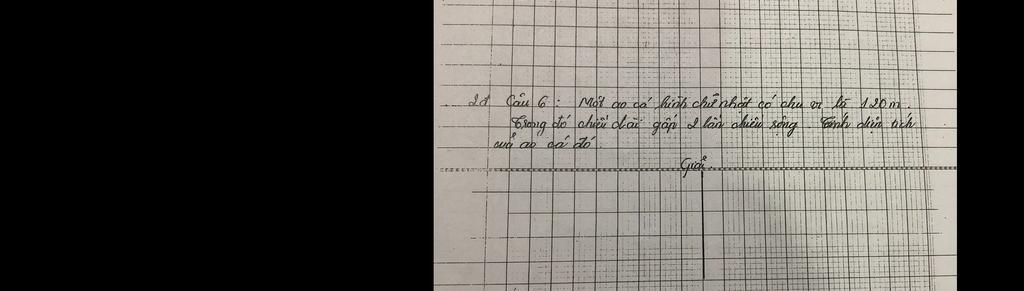 2đ Câu 6 : Một ao cá hình chữ nhật có chu vi là 120m.
Trong đó chiều dài gấp 2 lần chiều rộng. Tính diện tích
của ao cá đó.
Giải.